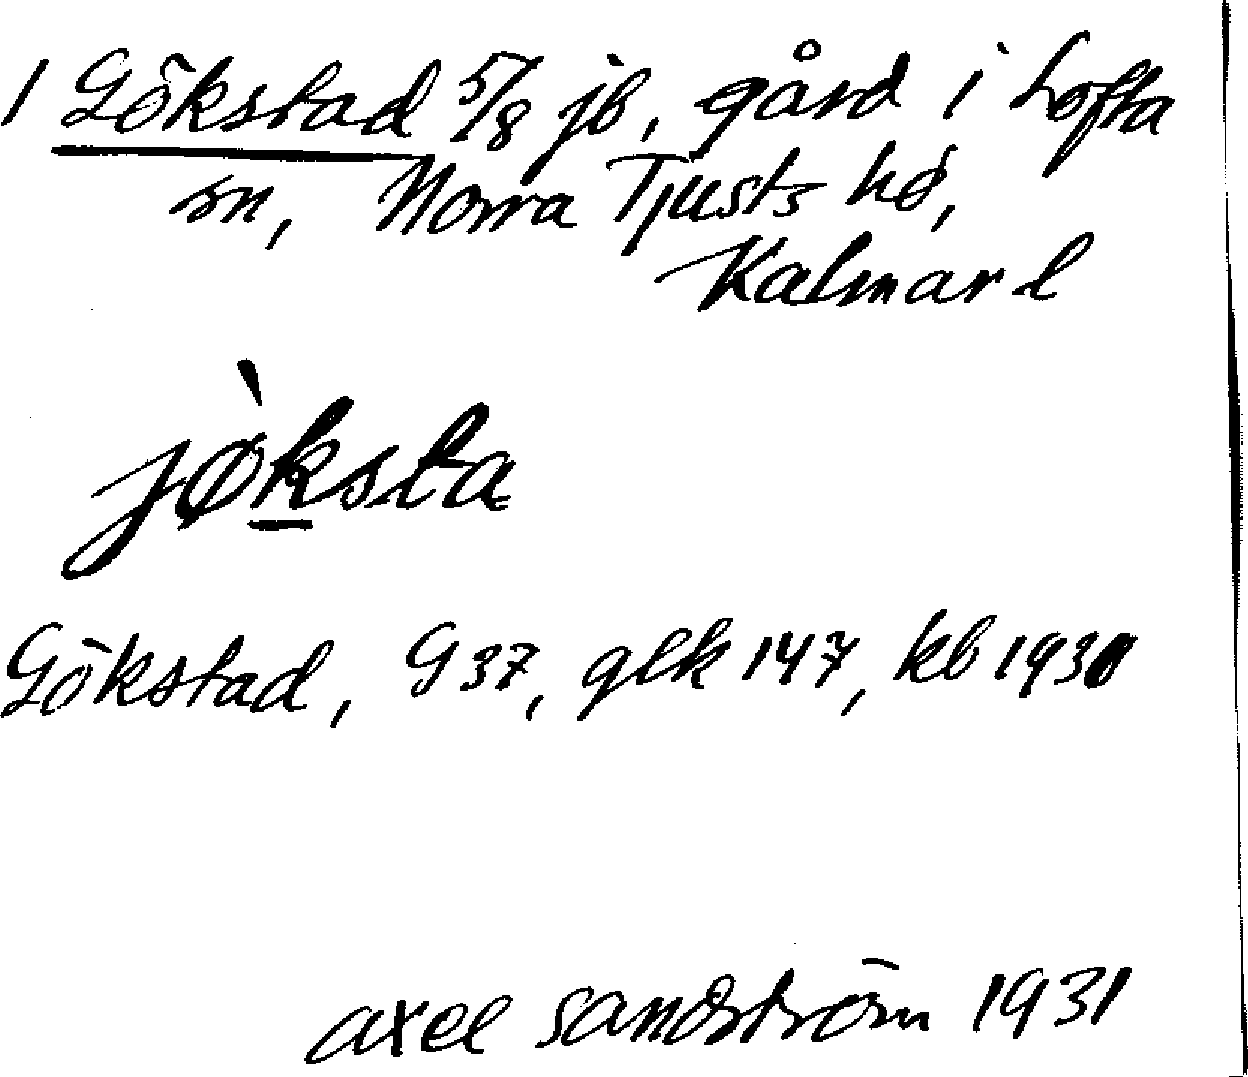 1 Gökstad 5/8 jb, gård i Lofta
sn, Norra Tjusts hd,
Kalmar l
jø̀ksta
Gökstad, G 37, glk 147, kb 1930
axel sandström 1931